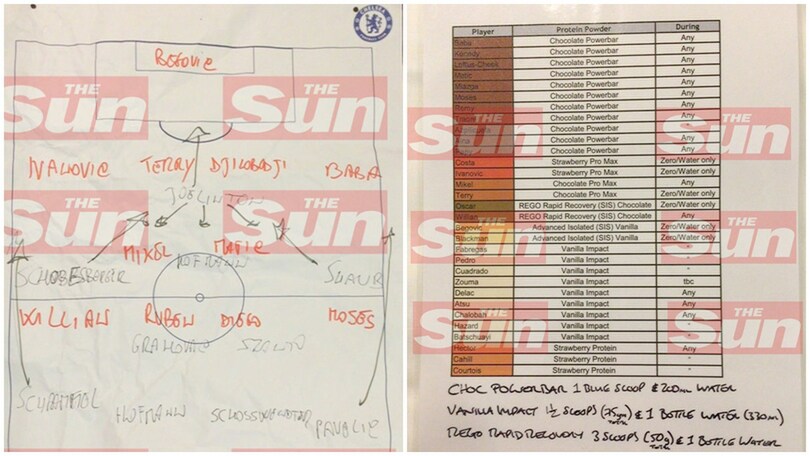 CHELSEA
BEGOVIC
THE Sun THE Sun
IVANOVIC TERRY DJILOBODJI BABA
JOELINTON
MIKEL MATIC
HOFMANN
SCHOBESBERGER SCHAUB
WILLIAN RUBEN DIEGO MOSES
GRAHOVIC SZANTO
SCHRAMMEL HOFMANN SCHOSSWENDTER PAVELIC
THE Sun THE Sun
Player Protein Powder During
Baba Chocolate Powerbar Any
Kennedy Chocolate Powerbar Any
Loftus-Cheek Chocolate Powerbar Any
Matic Chocolate Powerbar Any
Miazga Chocolate Powerbar Any
Moses Chocolate Powerbar Any
Remy Chocolate Powerbar Any
Chocolate Powerbar Any
Chocolate Powerbar Any
Chocolate Powerbar Any
Chocolate Powerbar Any
Costa Strawberry Pro Max Zero/Water only
Ivanovic Strawberry Pro Max Zero/Water only
Mikel Chocolate Pro Max Zero/Water only
Terry Chocolate Pro Max Zero/Water only
Oscar REGO Rapid Recovery (SIS) Chocolate Zero/Water only
Willian REGO Rapid Recovery (SIS) Chocolate Any
Begovic Advanced Isolated (SIS) Vanilla Zero/Water only
Blackman Advanced Isolated (SIS) Vanilla Zero/Water only
Fabregas Vanilla Impact Any
Pedro Vanilla Impact "
Cuadrado Vanilla Impact "
Zouma Vanilla Impact tbc
Delac Vanilla Impact Any
Atsu Vanilla Impact Any
Chalobah Vanilla Impact Any
Hazard Vanilla Impact "
Batschuayi Vanilla Impact "
Hector Strawberry Protein Any
Cahill Strawberry Protein "
Courtois Strawberry Protein "
CHOC POWERBAR 1 BLUE SCOOP & 200ml WATER
VANILLA IMPACT 1½ SCOOPS (75gm TOTAL) & 1 BOTTLE WATER (330ml)
REGO RAPID RECOVERY 3 SCOOPS (50g TOTAL) & 1 BOTTLE WATER